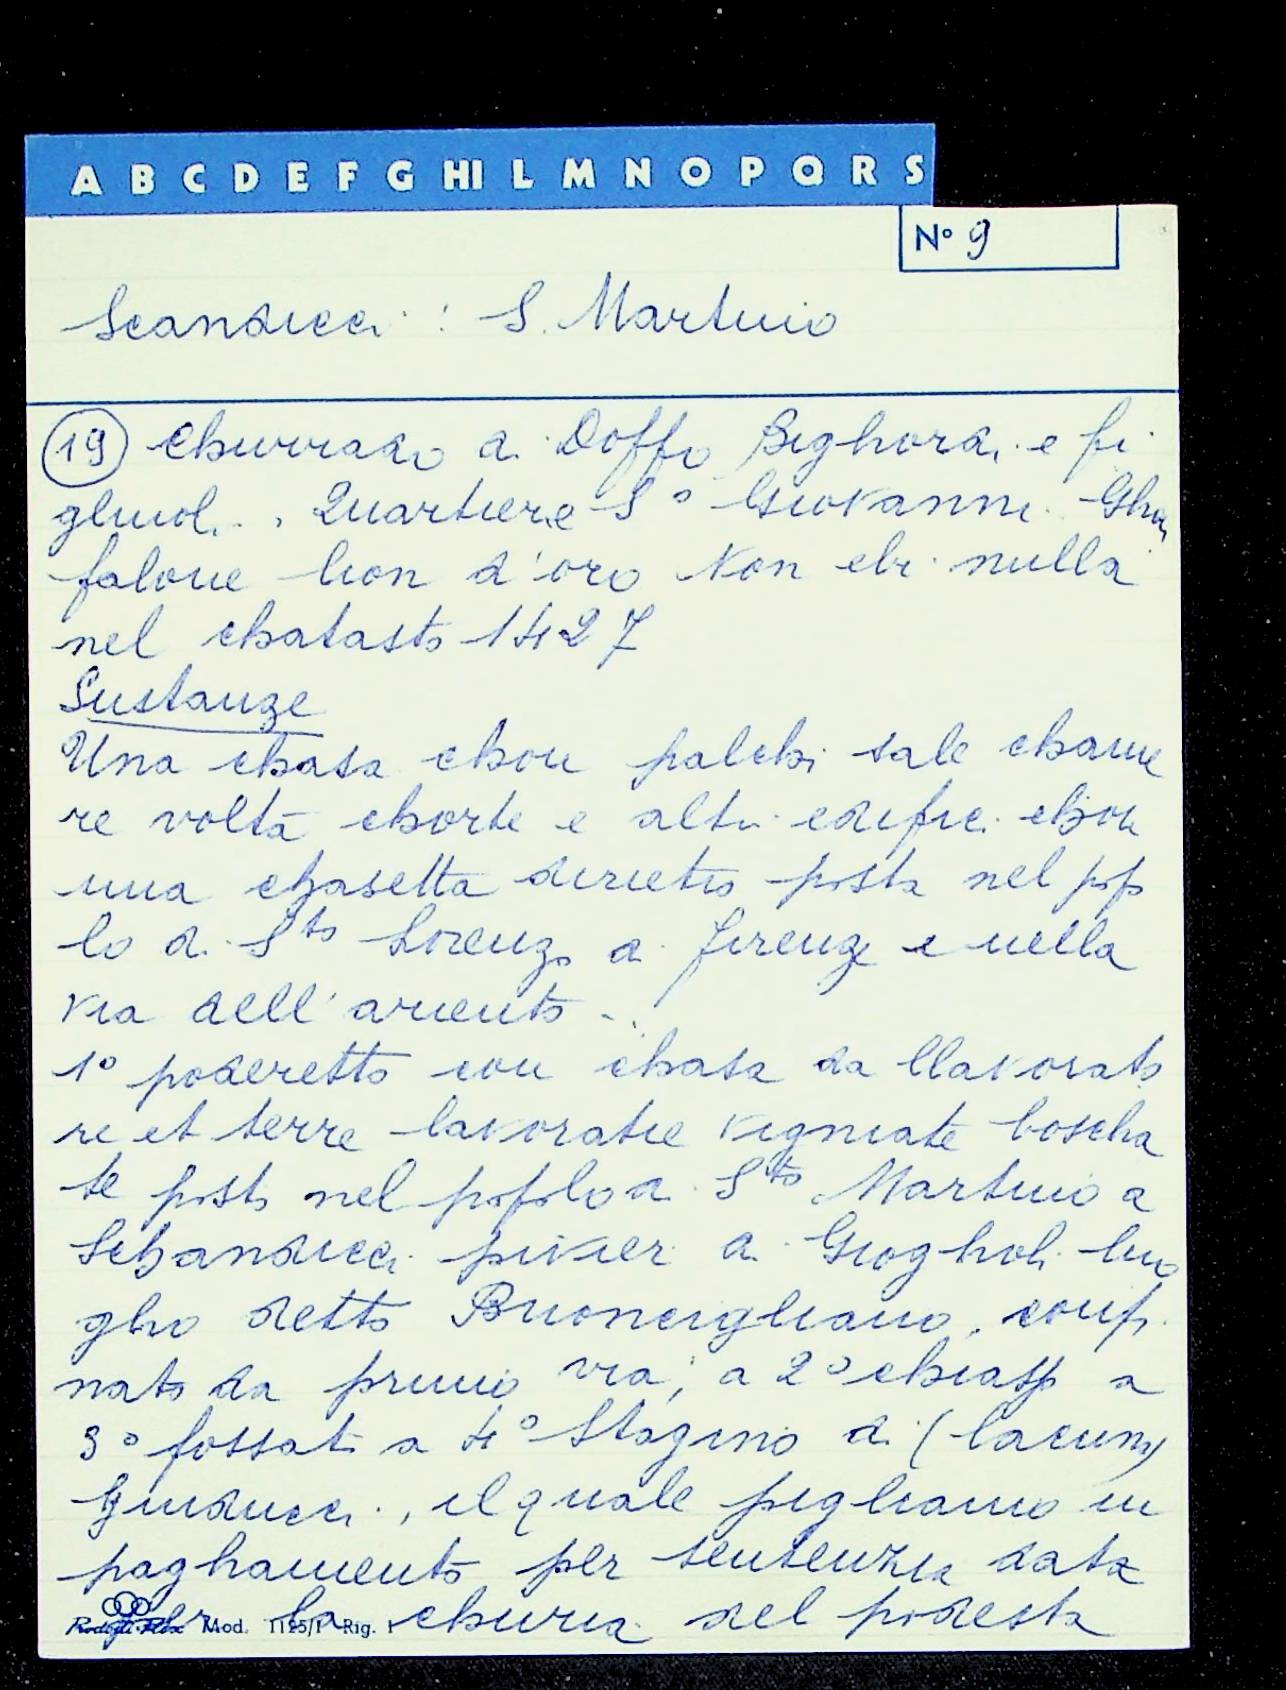 A B C D E F G HI L M N O P Q R S
N° 9
Scandicci : S. Martino
19 Churrado di Doffo Bighora, e fi
gliuoli., Quartiere S° Giovanni. Ghon
falone lion d'oro Non ebi nulla
nel chatasto 1427
Sustanze
Una chasa chon palchi sale chame
re volta chorte e altri edifici chon
una chasetta dirietro posta nel popo
lo di Sto Lorenzo di Firenze e nella
via dell'ariento.
1° poderetto con chasa da llavorato
re et terre lavoratie vigniate boscha
te posto nel popolo di Sto Martino a
Schandicci pivieri di Gioghole luo
gho detto Buoncigliano, confi
nato da primo via, a 2° chiasso a
3° fossati a 4° Stagino di (lacuna)
Guiducci, il quale pigliamo in
paghamento per sentenzia data
per la churia del podestà
Mod. 1195/1 Rig. 1